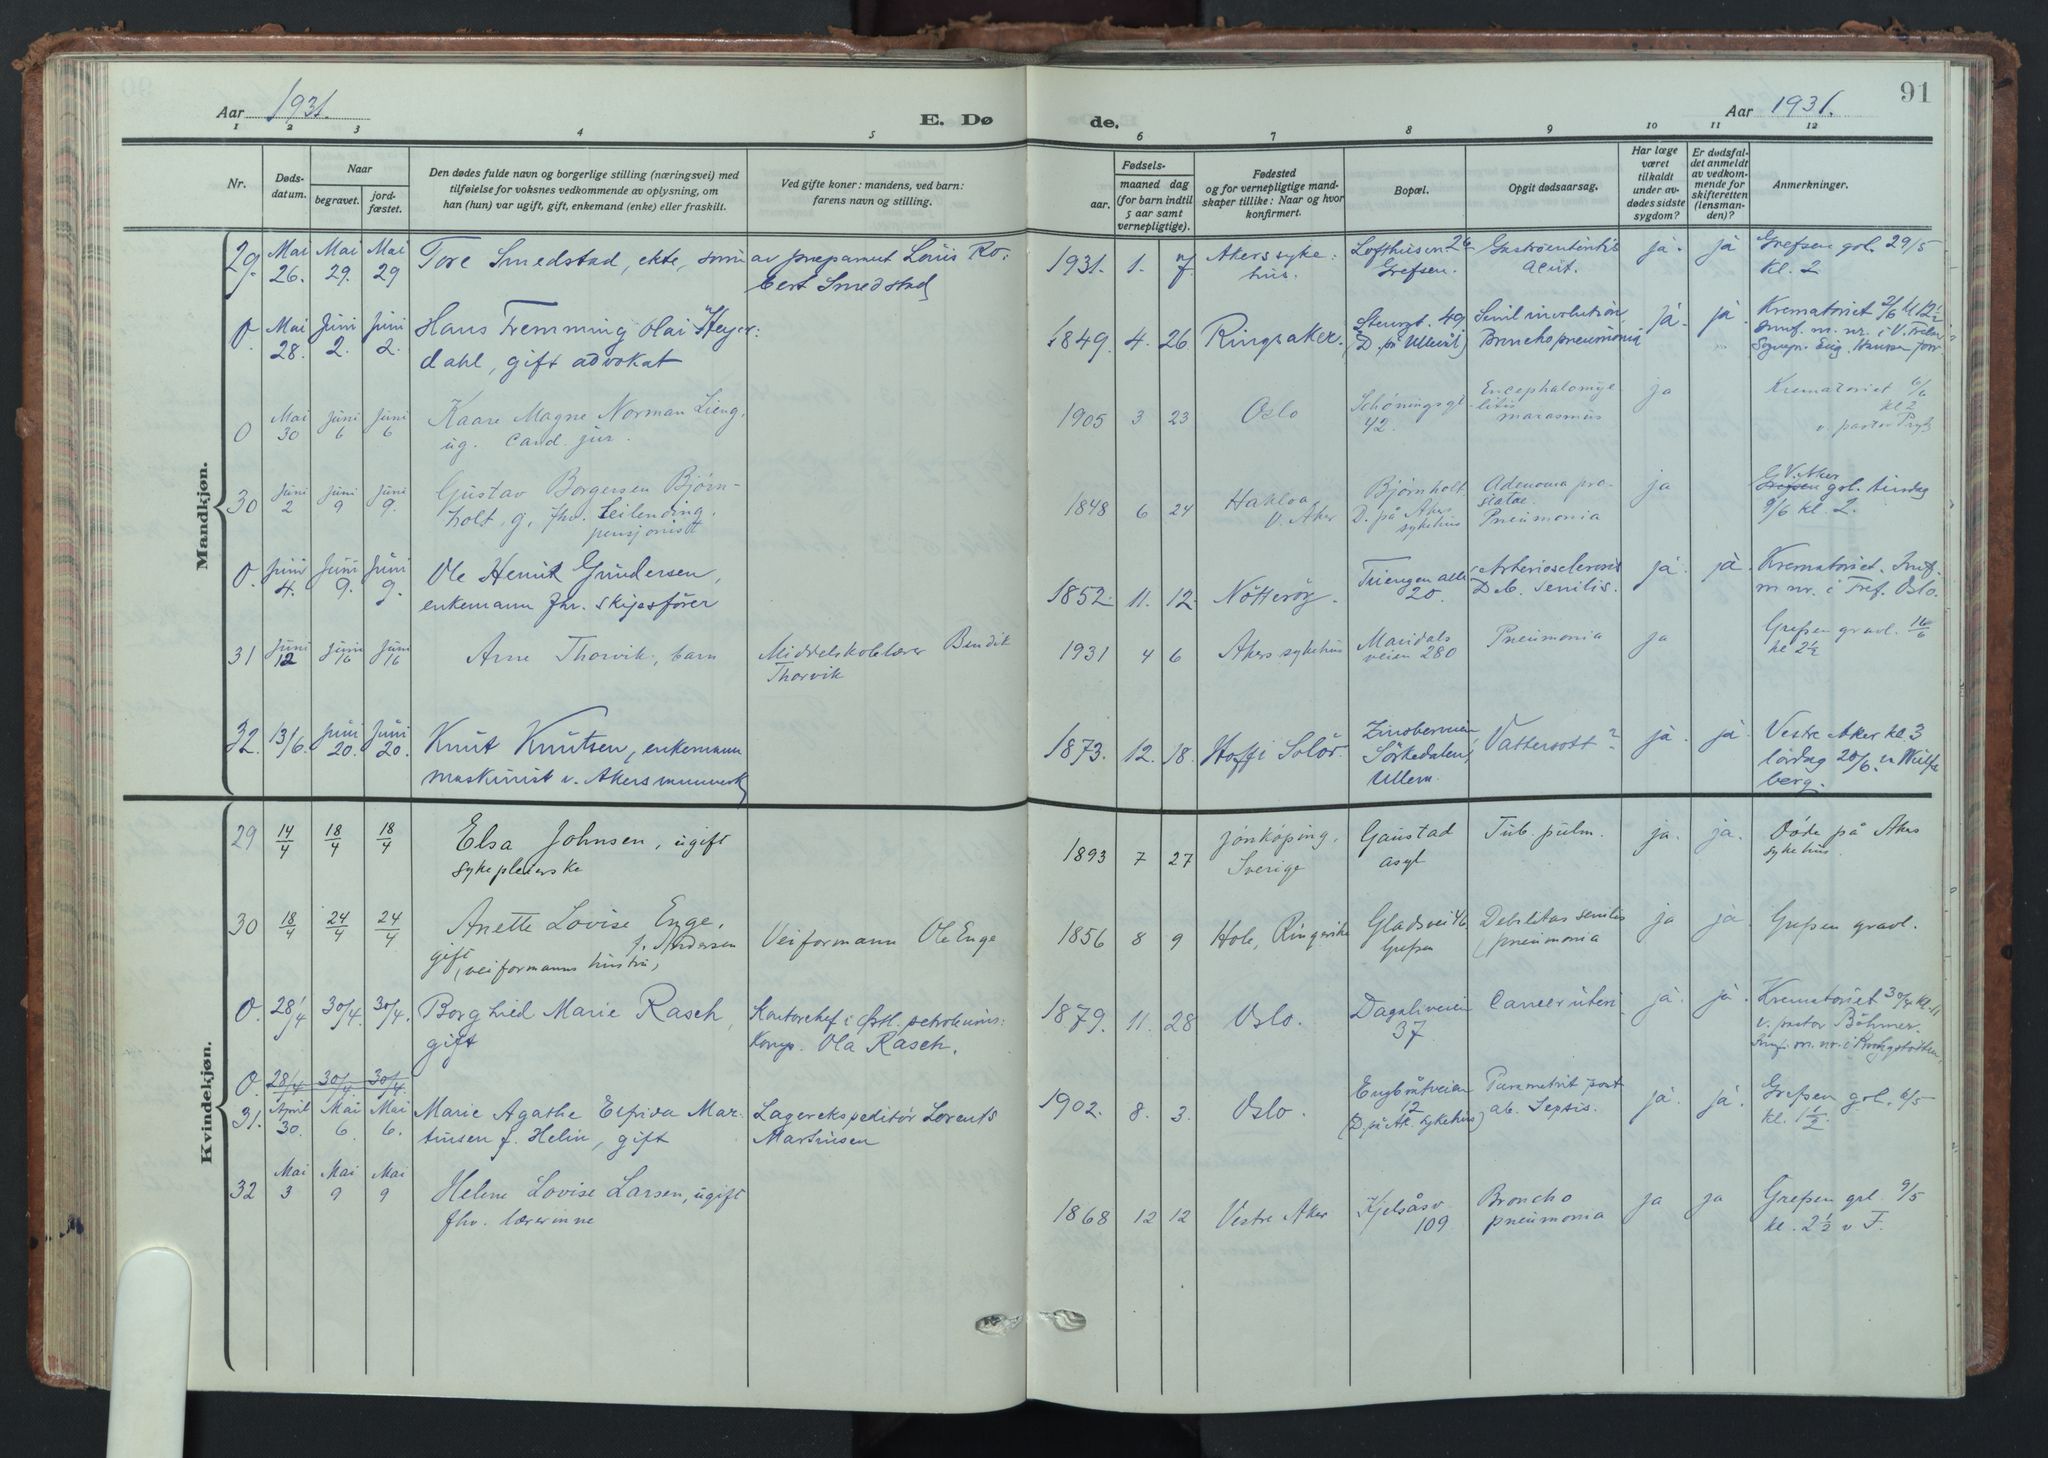 Aar 1931.
E. Dø
1 2 3 4 5
Nr.
Døds-
datum.
Naar
begravet.
jord-
fæstet.
Den dødes fulde navn og borgerlige stilling (næringsvei) med
tilføielse for voksnes vedkommende av oplysning, om
han (hun) var ugift, gift, enkemand (enke) eller fraskilt.
Ved gifte koner: mandens, ved barn:
farens navn og stilling.
de.
Aar 1931.
91
6 7 8 9 10 11 12
Fødsels-
aar.
maaned dag
(for barn indtil
5 aar samt
vernepligtige).
Fødested
og for vernepligtige mand-
skaper tillike: Naar og hvor
konfirmert.
Bopæl.
Opgit dødsaarsag.
Har læge
været
tilkaldt
under av-
dødes sidste
sygdom?
Er dødsfal-
det anmeldt
av vedkom-
mende for
skifteretten
(lensman-
den)?
Anmerkninger.
Mandkjøn.
29. Mai 26. Mai 29. Mai 29 Tore Smedstad, ekte, sønn av preparant Louis Ro-
bert Smedstad
1931. 1. Akers syke-
hus. Lofthusvn 26
Grefsen. Gastroenteritis
acut. ja. ja Grefsen gol. 29/5
kl. 2
O. Mai 28. Juni 2. Juni 2. Hans Flemming Olai Heyer-
dahl, gift advokat
1849. 4. 26 Ringsaker. Stensgt. 49
(D. på Ullevål) Senil involution
Bronchopneumonia ja. ja Krematoriet 2/6 kl 12½
O Mai 30 Juni 6 Juni 6 Kaare Magne Norman Lieng,
ug. cand. jur.
1905 3 23 Oslo Schøningsgt
42. Encephalomye-
litis
marasmus ja Krematoriet 6/6
kl 2
v. pastor
30 Juni 2 Juni 9 Juni 9. Gustav Borgersen Bjørn-
holt, g, fhv. leilending,
pensjonist
1848 6 24 Hakloa
V. Aker Bjørnholt
D. på Akers
sykehus Adenoma pro-
statae.
Pneumonia ja V. Aker
Grefsen gol. tirsdag
9/6 kl. 2.
O. Juni 4. Juni 9. Juni 9. Ole Henrik Gundersen,
enkemann fhv. skipsfører
1852. 11. 12. Nötteröy. Tuengen alle
20. Arteriosclerosis
Deb. senilis. ja. ja. Krematoriet. Innf.
m nr. i Tref. Oslo.
31 Juni 12 Juni 16 Juni 16 Arne Thorvik, barn Middelskolelærer Bendik
Thorvik
1931 4 6 Akers sykehus Maridals
veien 280 Pneumonia ja Grefsen gravl. 16/6
kl 2½
32. 13/6 Juni 20. Juni 20. Knut Knutsen, enkemann
maskinist v. Akers
1873. 12. 18. Hoff i Solör.
Sörkedalen,
Ullern. Vattersott? ja. ja. Vestre Aker kl 3
lördag 20/6.
berg.
Kvindekjøn.
29 14/4 18/4 18/4 Elsa Johnsen, ugift
sykepleierske
1893 7 27 Jönköping,
Sverige Gaustad
asyl Tub. pulm. ja. ja. Døde på Akers
sykehus.
30 18/4 24/4 24/4 Anette Lovise Enge,
f. Andersen
gift, veiformanns hustru, Veiformann Ole Enge
1856 8 9 Hole, Ringerike Gladsvei 46
Grefsen Debilitas senilis
(pneumonia ja ja Grefsen gravl.
O. 28/4 30/4. 30/4. Borghild Marie Rasch,
gift Kontorchef i Østl. petroleums-
komp. Ola Rasch.
1879. 11. 28 Oslo. Dagaliveien
37 Cancer uteri ja. ja. Krematoriet 30/4 kl. 11
v. pastor Böhmer.
O. 28/4 30/4 30/4
31. April 30. Mai 6. Mai 6. Marie Agathe Elfrida Mar-
tinsen f. Helin, gift Lagerekspeditør Lorents
Martinsen
1902. 8. 3. Oslo. Engbråtveien
12
(D. på Ak. sykehus) Parametrit post
ab. Sepsis. ja. ja. Grefsen gol. 6/5
kl. 1½
32 Mai 3 Mai 9 Mai 9 Helene Lovise Larsen, ugift
fhv. lærerinne
1868 12 12 Vestre Aker Kjelsåsv
109 Broncho
pneumonia ja ja Grefsen grl. 9/5
kl. 2½ v F.